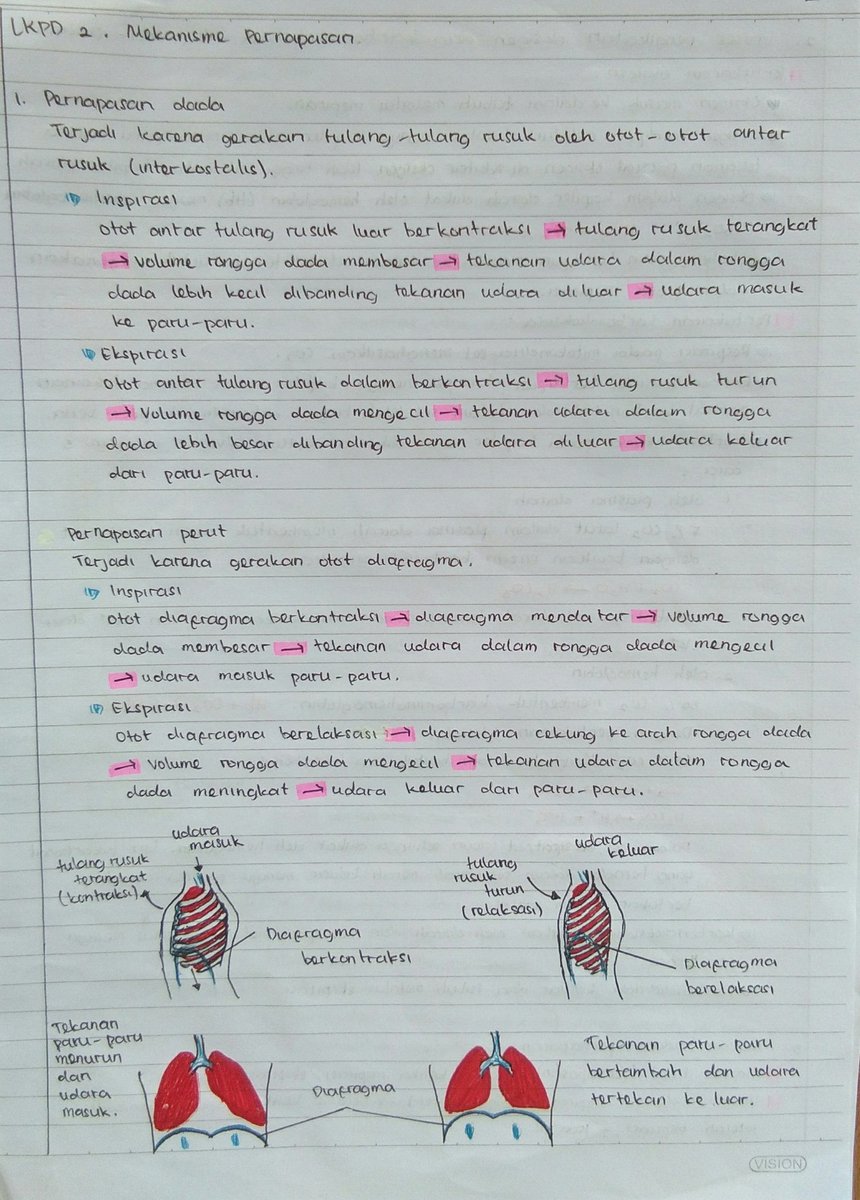 LKPD 2. Mekanisme Pernapasan.
1. Pernapasan dada
Terjadi karena gerakan tulang-tulang rusuk oleh otot-otot antar
rusuk (interkostalis).
Inspirasi
Otot antar tulang rusuk luar berkontraksi → tulang rusuk terangkat
→ volume rongga dada membesar → tekanan udara dalam rongga
dada lebih kecil dibanding tekanan udara diluar → udara masuk
ke paru-paru.
Ekspirasi
Otot antar tulang rusuk dalam berkontraksi → tulang rusuk turun
→ Volume rongga dada mengecil → tekanan udara dalam rongga
dada lebih besar dibanding tekanan udara diluar → udara keluar
dari paru-paru.
Pernapasan perut
Terjadi karena gerakan otot diafragma.
Inspirasi
Otot diafragma berkontraksi → diafragma mendatar → volume rongga
dada membesar → tekanan udara dalam rongga dada mengecil
→ udara masuk paru-paru.
Ekspirasi
Otot diafragma berelaksasi → diafragma cekung ke arah rongga dada
→ Volume rongga dada mengecil → tekanan udara dalam rongga
dada meningkat → udara keluar dari paru-paru.
udara
masuk
tulang rusuk
terangkat
(kontraksi)
Diafragma
berkontraksi
udara
keluar
tulang
rusuk
turun
(relaksasi)
Diafragma
berelaksasi
Tekanan
paru-paru
menurun
dan
udara
masuk.
Diafragma
Tekanan paru-paru
bertambah dan udara
tertekan ke luar.
VISION